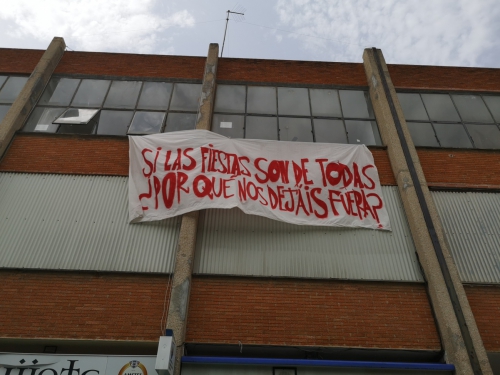 SÍ LAS FIESTAS SON DE TODAS
¿POR QUÉ NOS DEJÁIS FUERA?